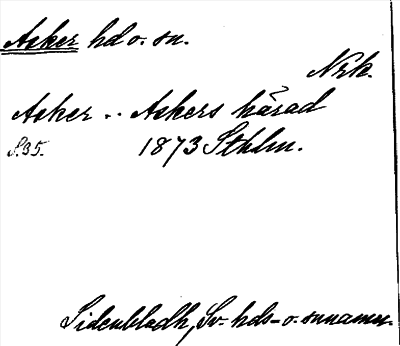 Asker hd o. sn.
Nrk.
Asker .. Askers härad
S.35. 1873 Sthlm.
Sidenbladh, Sv. hds- o. snnamn.